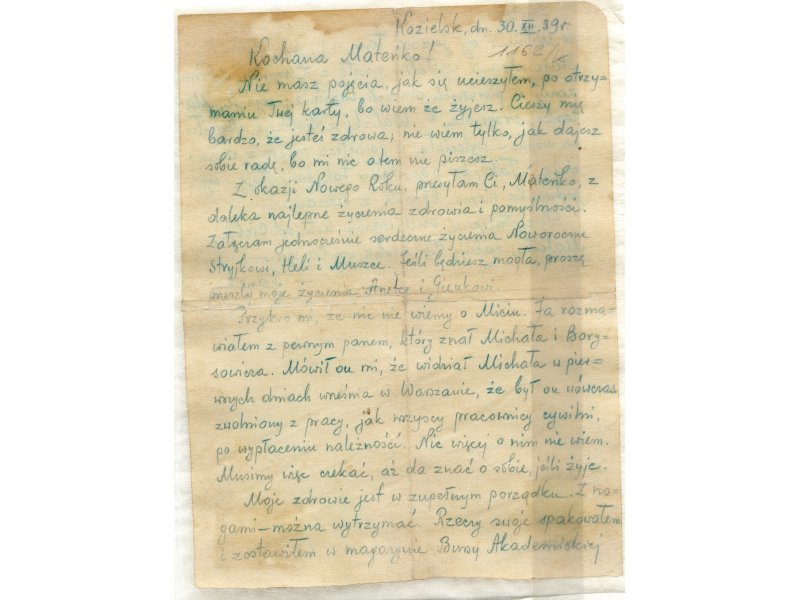 Kozielsk, dn. 30.XII.39r.
1162/
Kochana Mateńko!
Nie masz pojęcia, jak się ucieszyłem, po otrzy=
maniu Twej karty, bo wiem że żyjesz. Cieszy mię
bardzo, że jesteś zdrowa; nie wiem tylko, jak dajesz
sobie radę, bo mi nic o tem nie piszesz.
Z okazji Nowego Roku, przesyłam Ci, Mateńko, z
daleka najlepsze życzenia zdrowia i pomyślności.
Załączam jednocześnie serdeczne życzenia Noworoczne
Stryjkowi, Heli i Muszce. Jeśli będziesz mogła, proszę
prześlij moje życzenia i Gienkowi.
Przykro mi, że nic nie wiemy o Miciu. Ja rozma=
wiałem z pewnym panem, który znał Michała i Bory=
sowicza. Mówił on mi, że widział Michała w pier=
wszych dniach września w Warszawie, że był on wówczas
zwolniony z pracy, jak wszyscy pracownicy cywilni,
po wypłaceniu należności. Nic więcej o nim nie wiem.
Musimy więc czekać, aż da znać o sobie, jeśli żyje.
Moje zdrowie jest w zupełnym porządku. Z no=
gami – można wytrzymać. Rzeczy swoje spakowałem
i zostawiłem w magazynie Bursy Akademickiej